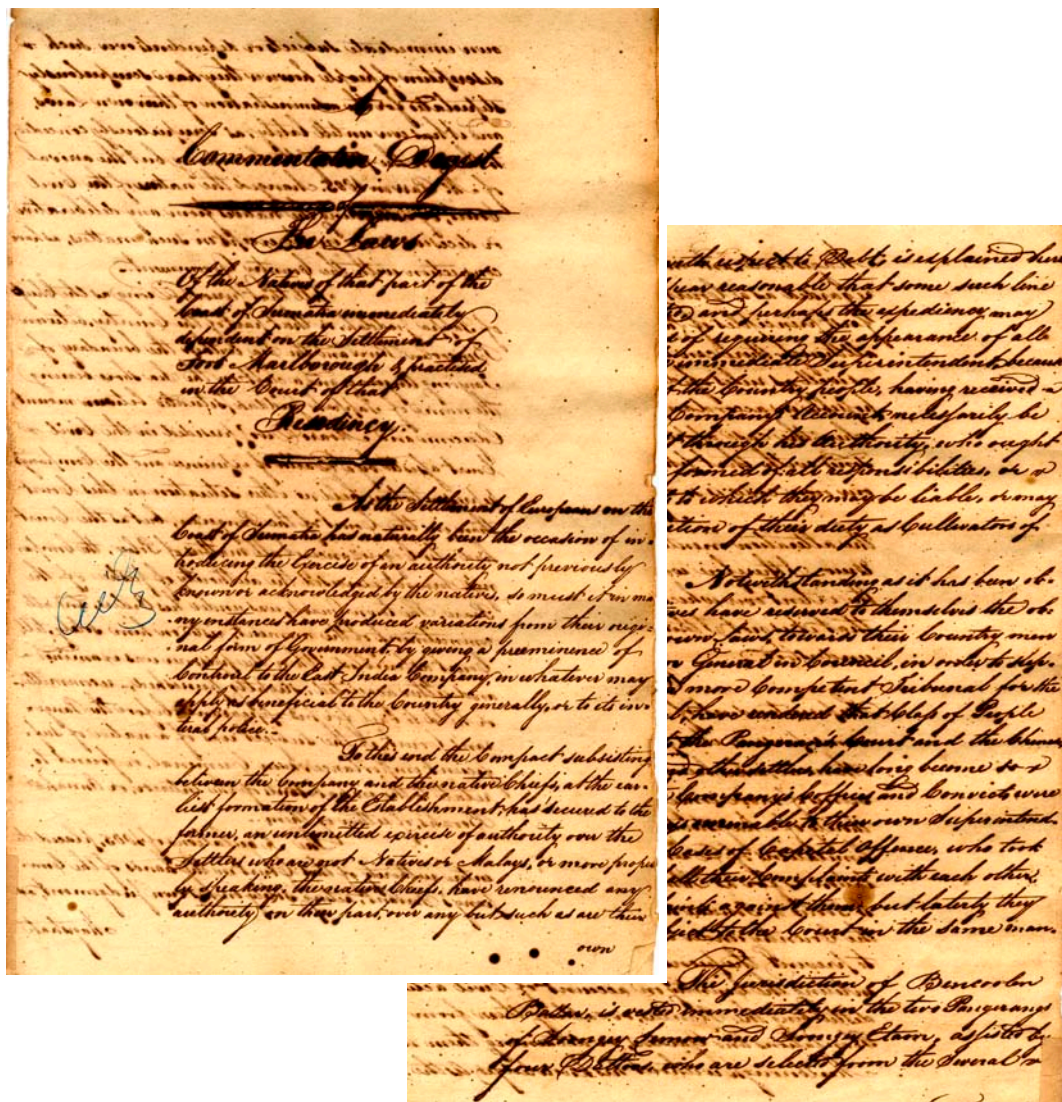 Commentative Digest
of
The Laws
Of the Natives of that part of the
Coast of Sumatra immediately
dependent on the Settlement of
Fort Marlborough & practised
in the Court of that
Residency.
As the Settlement of Europeans on the
Coast of Sumatra has naturally been the occasion of in-
troducing the Exercise of an authority not previously
known or acknowledged by the natives, so must it in ma
ny instances have produced variations from their origi-
nal form of Government, by giving a preeminence of
Controul to the East India Company, in whatever may
apply as beneficial to the Country generally, or to its in-
ternal police.-
To this end the Compact subsisting
between the Company and the native Chiefs, at the ear
liest formation of the Establishment, has secured to the
former, an unlimitted exercise of authority over the
Settlers who are not Natives or Malays, or more proper
ly speaking, the native Chiefs, have renounced any
authority on their part, over any but such as are their
own
with respect to Debts is explained here
pear reasonable that some such line
and perhaps the expediency may
e of requiring the appearance of all
immediate Superintendent, because
t the Country people, having received a
Company's Account, necessarily be
t through his authority, who ought
formed of all responsibilities, or
t to which they may be liable, or may
cution of their duty as Cultivators of
Notwithstanding as it has been ob-
ives have reserved to themselves the ob.
own Laws, towards their Country men
r General in Council, in order to
d more Competent Tribunal for the
l, have rendered that Class of People
to the Pangeran's Court and the Chinese
other settlers have long become so
t Company's Coffries and Convicts were
amenable to their own Superintend.
Cases of Capital Offences, who took
all their Complaints with each other,
against them, but laterly they
bject to the Court in the same man.
The Jurisdiction of Bencoolen
is vested immediately in the two Pangerangs
of Soongey Lemow and Soongey Etam, assisted by
four Dattoos, who are selected from the Several